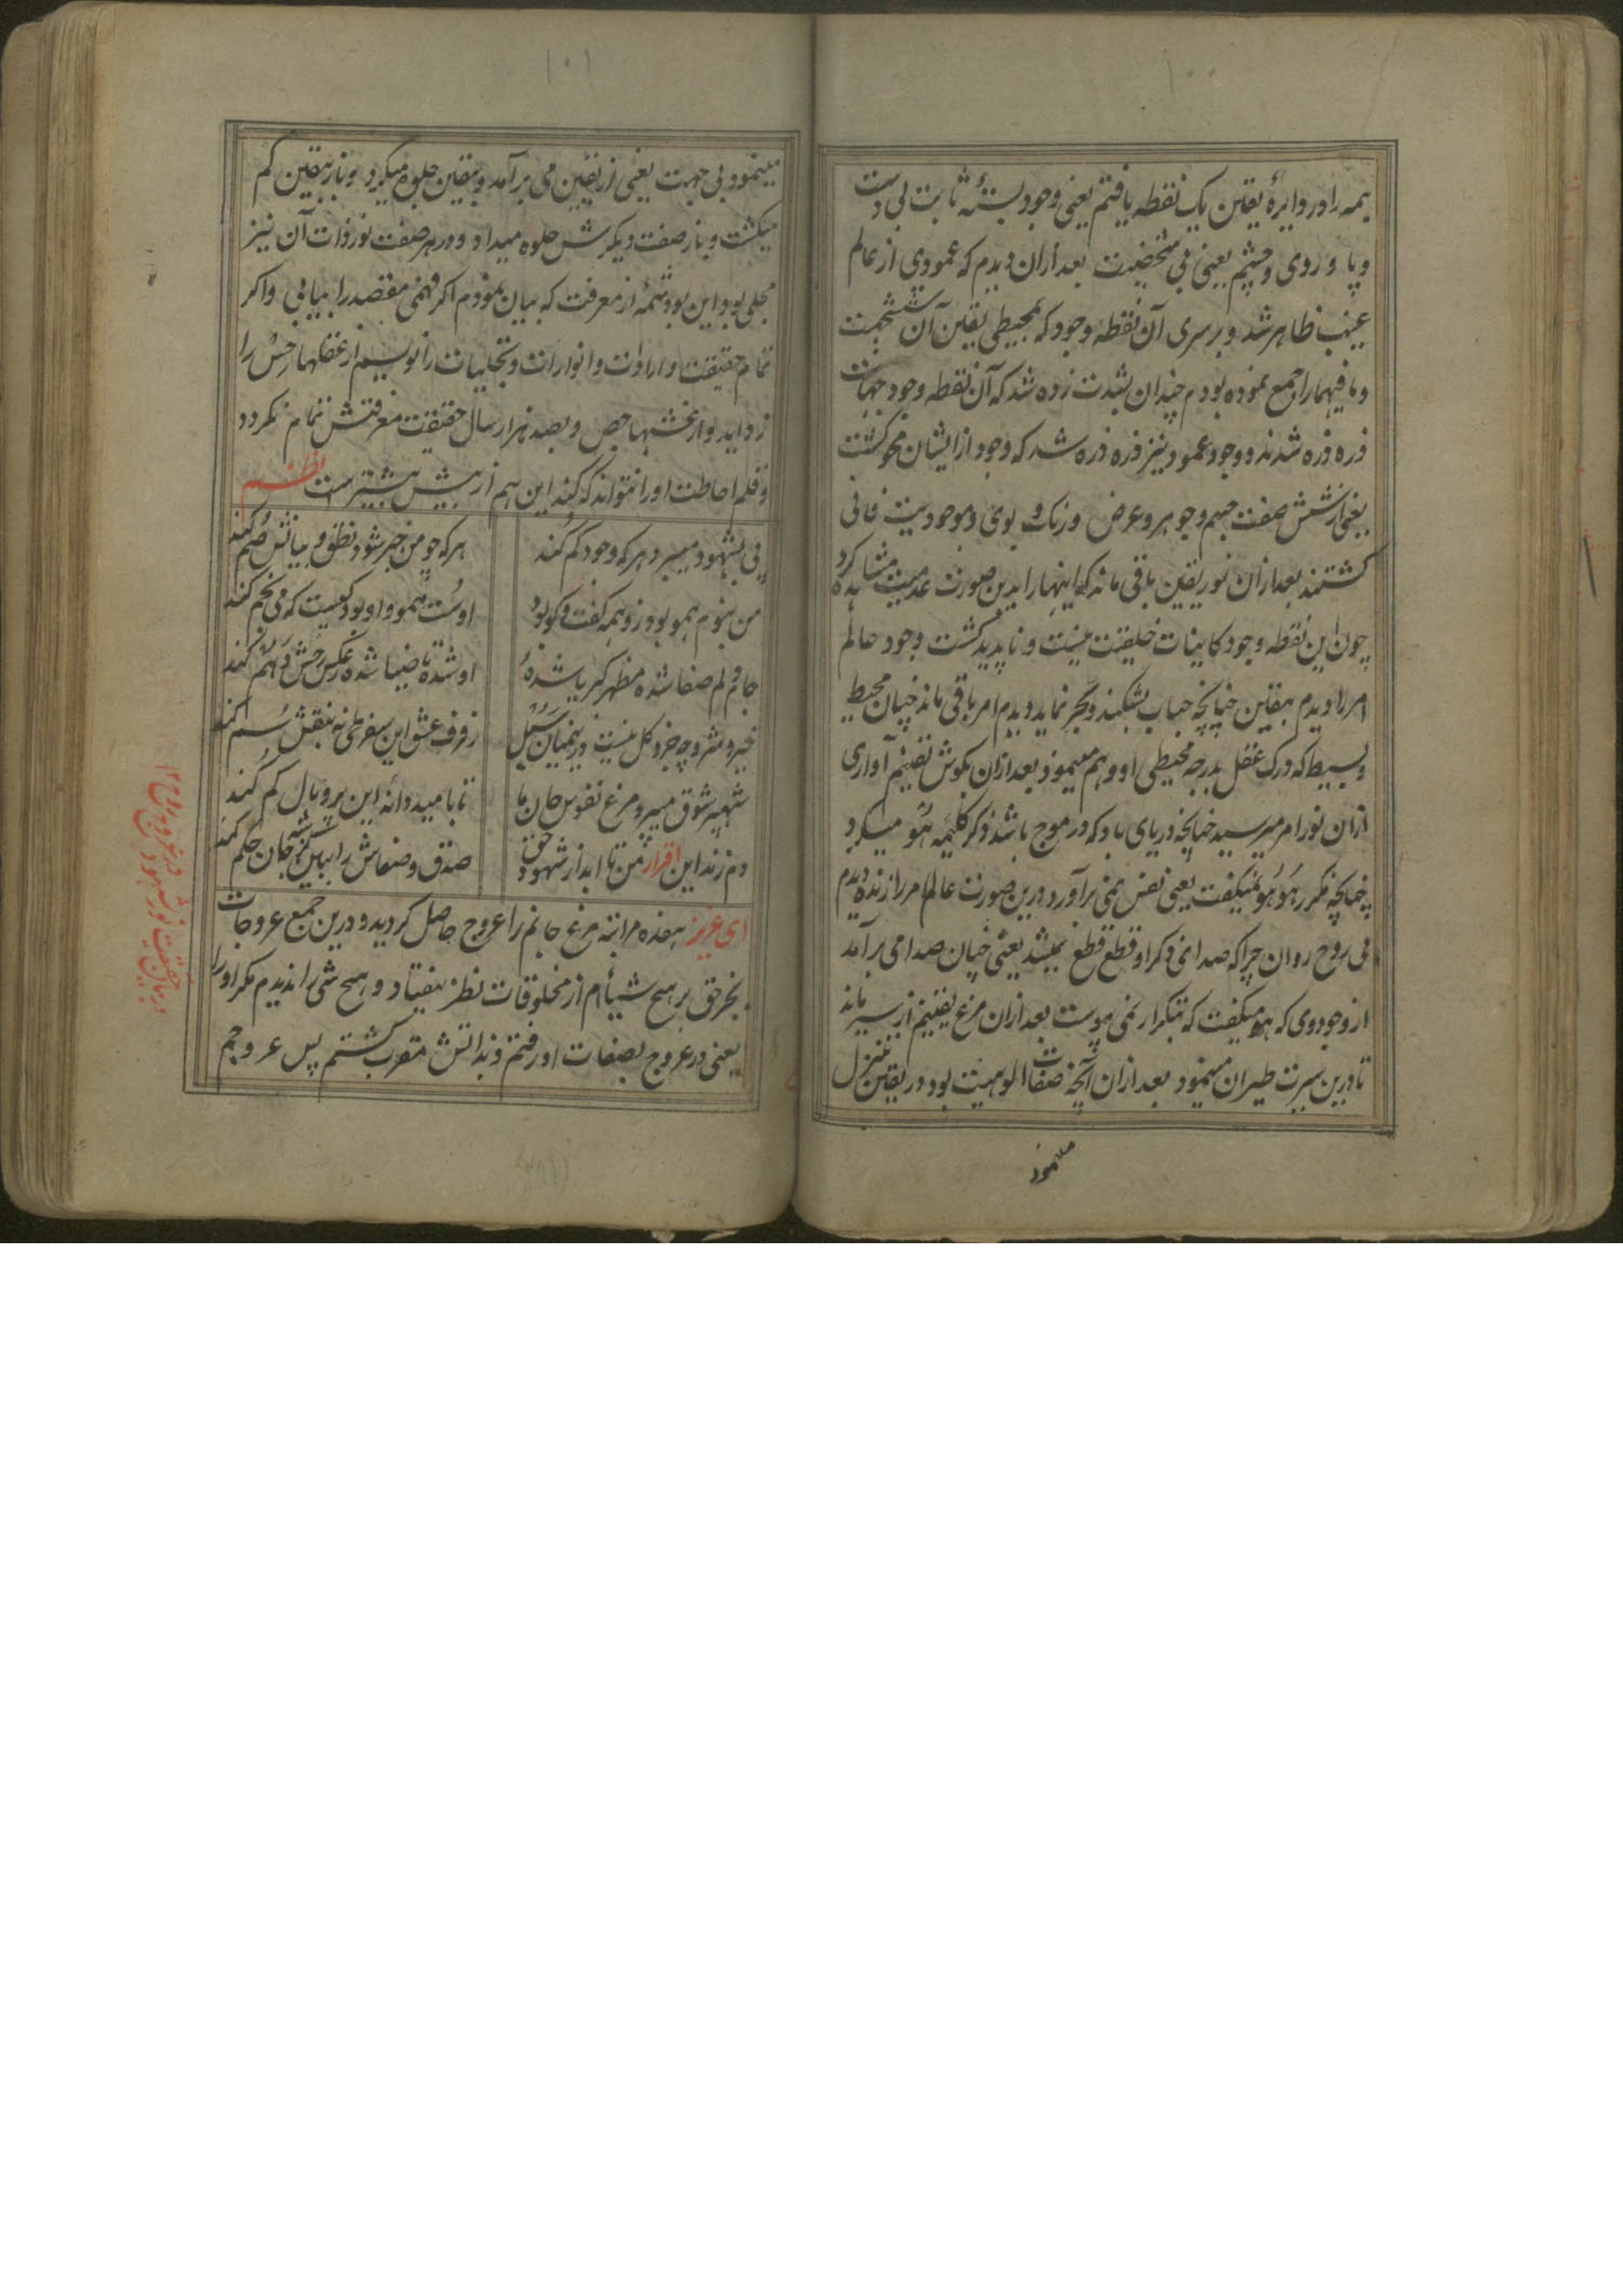 ۱۰۰
همه را در دایرهٔ یقین یک نقطه یافتم یعنی وجود بستهٔ ثابت بی دست
و پا و روی و چشم یعنی بی شخصیت بعد ازان دیدم که عمودی از عالم
غیب ظاهر شد و بر سری آن نقطه وجود که بمحیطی یقین آن ششجهت
و ما فیهما را جمع نموده بودم چندان بشدت زده شد که آن نقطه وجود جهات
ذره ذره شدند و وجود عمود نیز ذره ذره شد که وجود از ایشان محو گشت
یعنی از شش صفت جسم و جوهر و عرض و رنک و بوی و موجودیت فانی
کشتند بعد ازان نور یقین باقی ماند که اینها را بدین صورت عدمیت مشاهده کرد
چون این نقطه وجود کاینات خلیقت نیست و ناپدید کشت وجود عالم
امر را دیدم بیقین چنانچه حباب بشکند و بحر نماید دیدم امر باقی ماند چنان محیط
و بسیط که درک عقل بدرجه محیطی او وهم مینمود بعد ازان بکوش یقینم آوازی
ازان نور امر میرسید چنانچه دریای با و که در موج باشد ذکر کلیمه هُو میکرد
چنانچه مکرر هُو هُو نمیکفت یعنی نفس نمی برآورد درین صورت عالم امر را زنده دیدم
بی روح روان چرا که صدای ذکر او قطع قطع نمیشد یعنی چنان صدا می برآمد
از وجود وی که هو میکفت که بتکرار نمی پیوست بعد ازان مرغ یقینم از سیر ماند
تا درین سیرت طیران مینمود بعد ازان آنچه صفات الوهیت بود در یقین تنزل
مینمود
۱۰۱
مینمود بی جهت یعنی از یقین می برآمد و بیقین جلوه میکرد و باز بیقین کم
میکشت و باز صفت دیکرش جلوه میداد و در هر صفت نور ذات آن نیز
مجلی بود این بود شمهٔ از معرفت که بیان نمودم اکر فهمی مقصد را بیابی و اکر
تمام حقیقت واردات و انوارات و تجلیات را نویسم از عقلها حس را
زداید و از بخشها حص و بصد هزار سال حقیقت معرفتش تمام نکردد
و قلم احاطت او را نتواند که کند این هم از بیش بیشترست نظم
پی بشهود میبرد هر که وجود کم کند
هر که چو من خبر شود نطق و بیانش صم کند
من نبوم همو بود زو همه کفت و کو بود
اوست همو و او بود کیست که می نخم کند
جام دلم صفا شده مظهر کبریا شده
او شده تا ضیا شده عکس رخش دلم کند
خیر و شر و چه جزو کل نیست درینمیان سبل
زفرف عشق این سفر طی نه بنقش سم کند
شهپر شوق میبرد مرغ نفوس جان ما
تا بامید دانه این پر و بال کم کند
دم زند این اقرار من تا ابد از شهود حق
صدق و صفاش را ببین کز شه جان حکم کند
ای عزیز هفده مراتبه مرغ جانم را عروج حاصل کردید و درین جمع عروجات
بجز حق بر هیچ شیأم از مخلوقات نظر نیفتاد و هیچ شی را ندیدم مکر او را
یعنی در عروج بصفات او رفتم و بذاتش مقرب کشتم پس عروجم
در بیان حقیقت نور شهود در عروج روح ۱۲